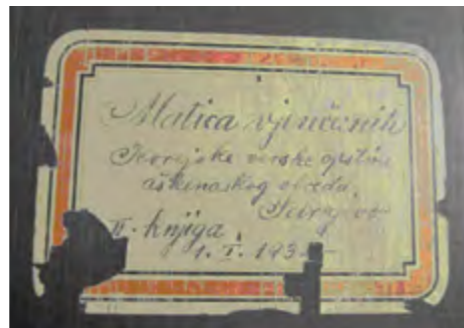 Matica vjenčanih
Jevrejske verske opštine
aškenaskog obreda,
Sarajevo
II. knjiga
1. I. 193